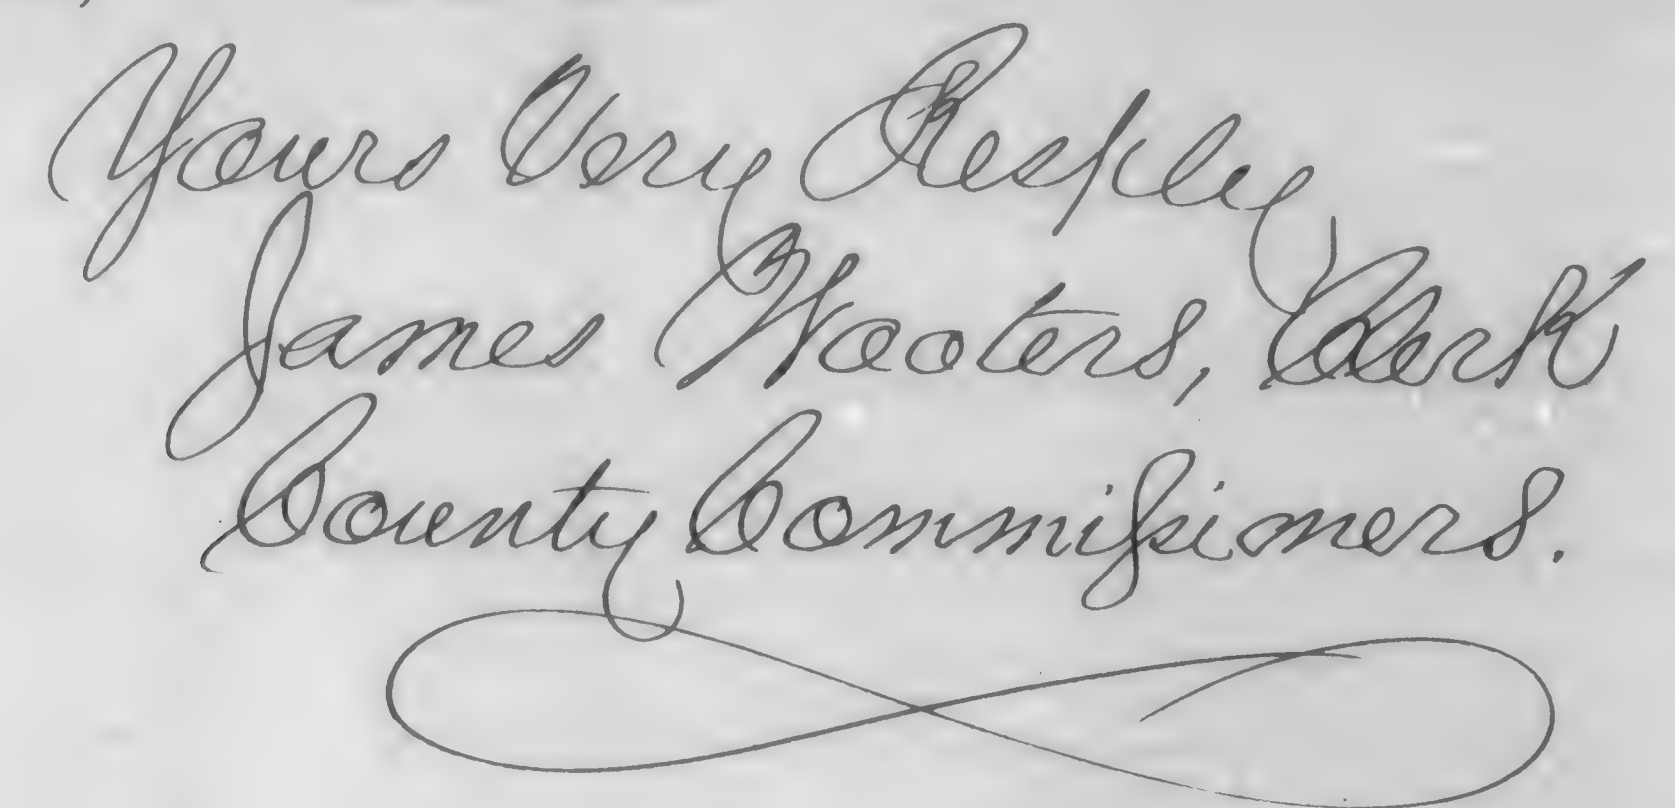 Yours Very Resply
James Wooters, Clerk
County Commissioners.